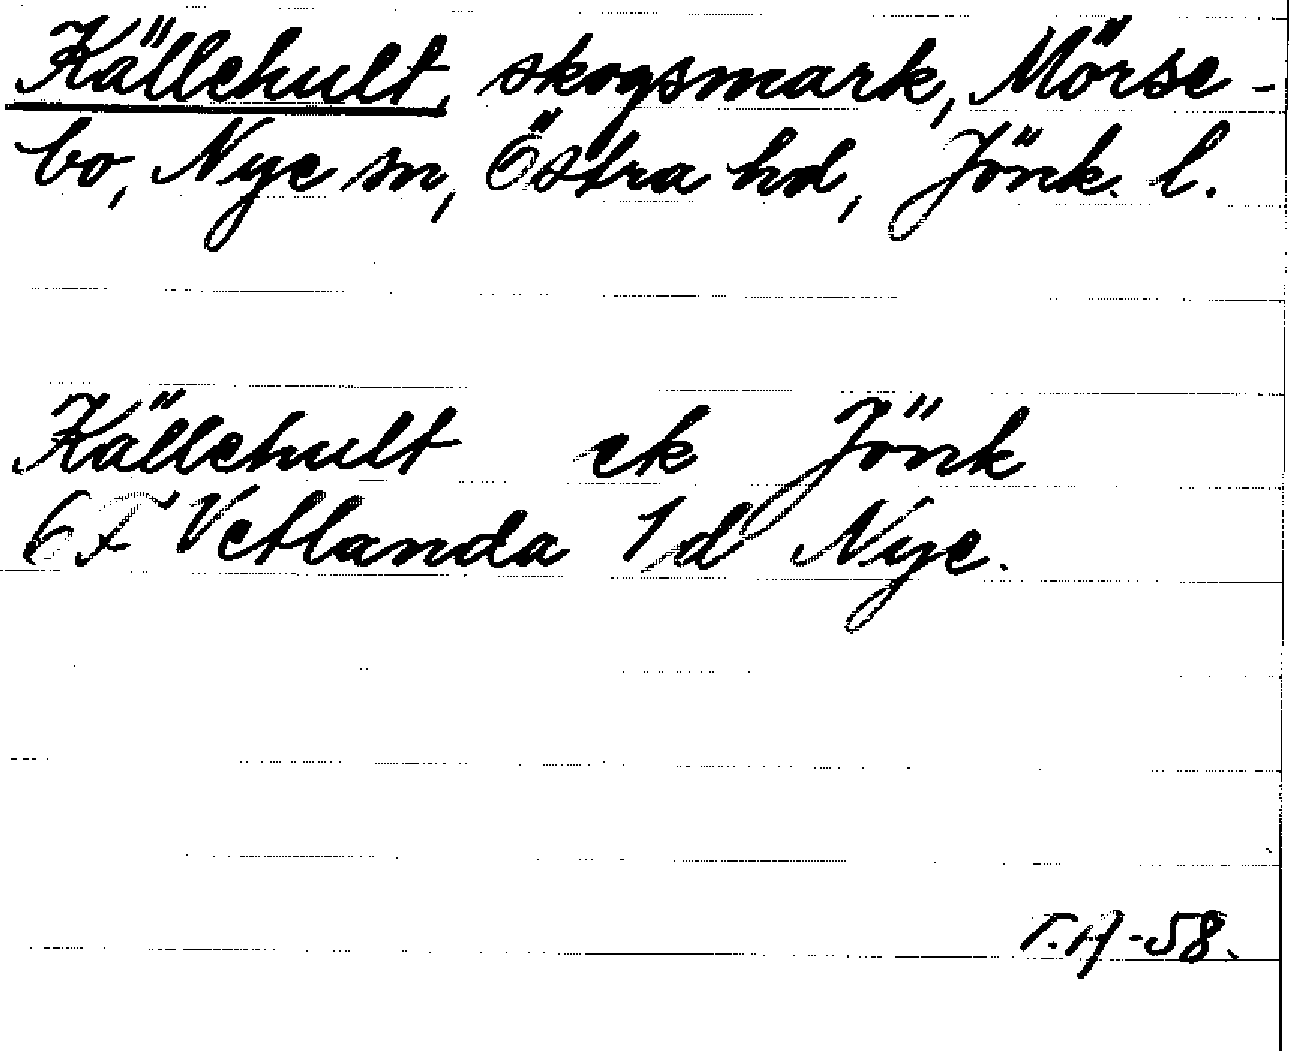 Källehult, skogsmark, Mörse-
bo, Nye sn, Östra hd, Jönk. l.
Källehult ek Jönk
6F Vetlanda 1d Nye.
T.A-58.